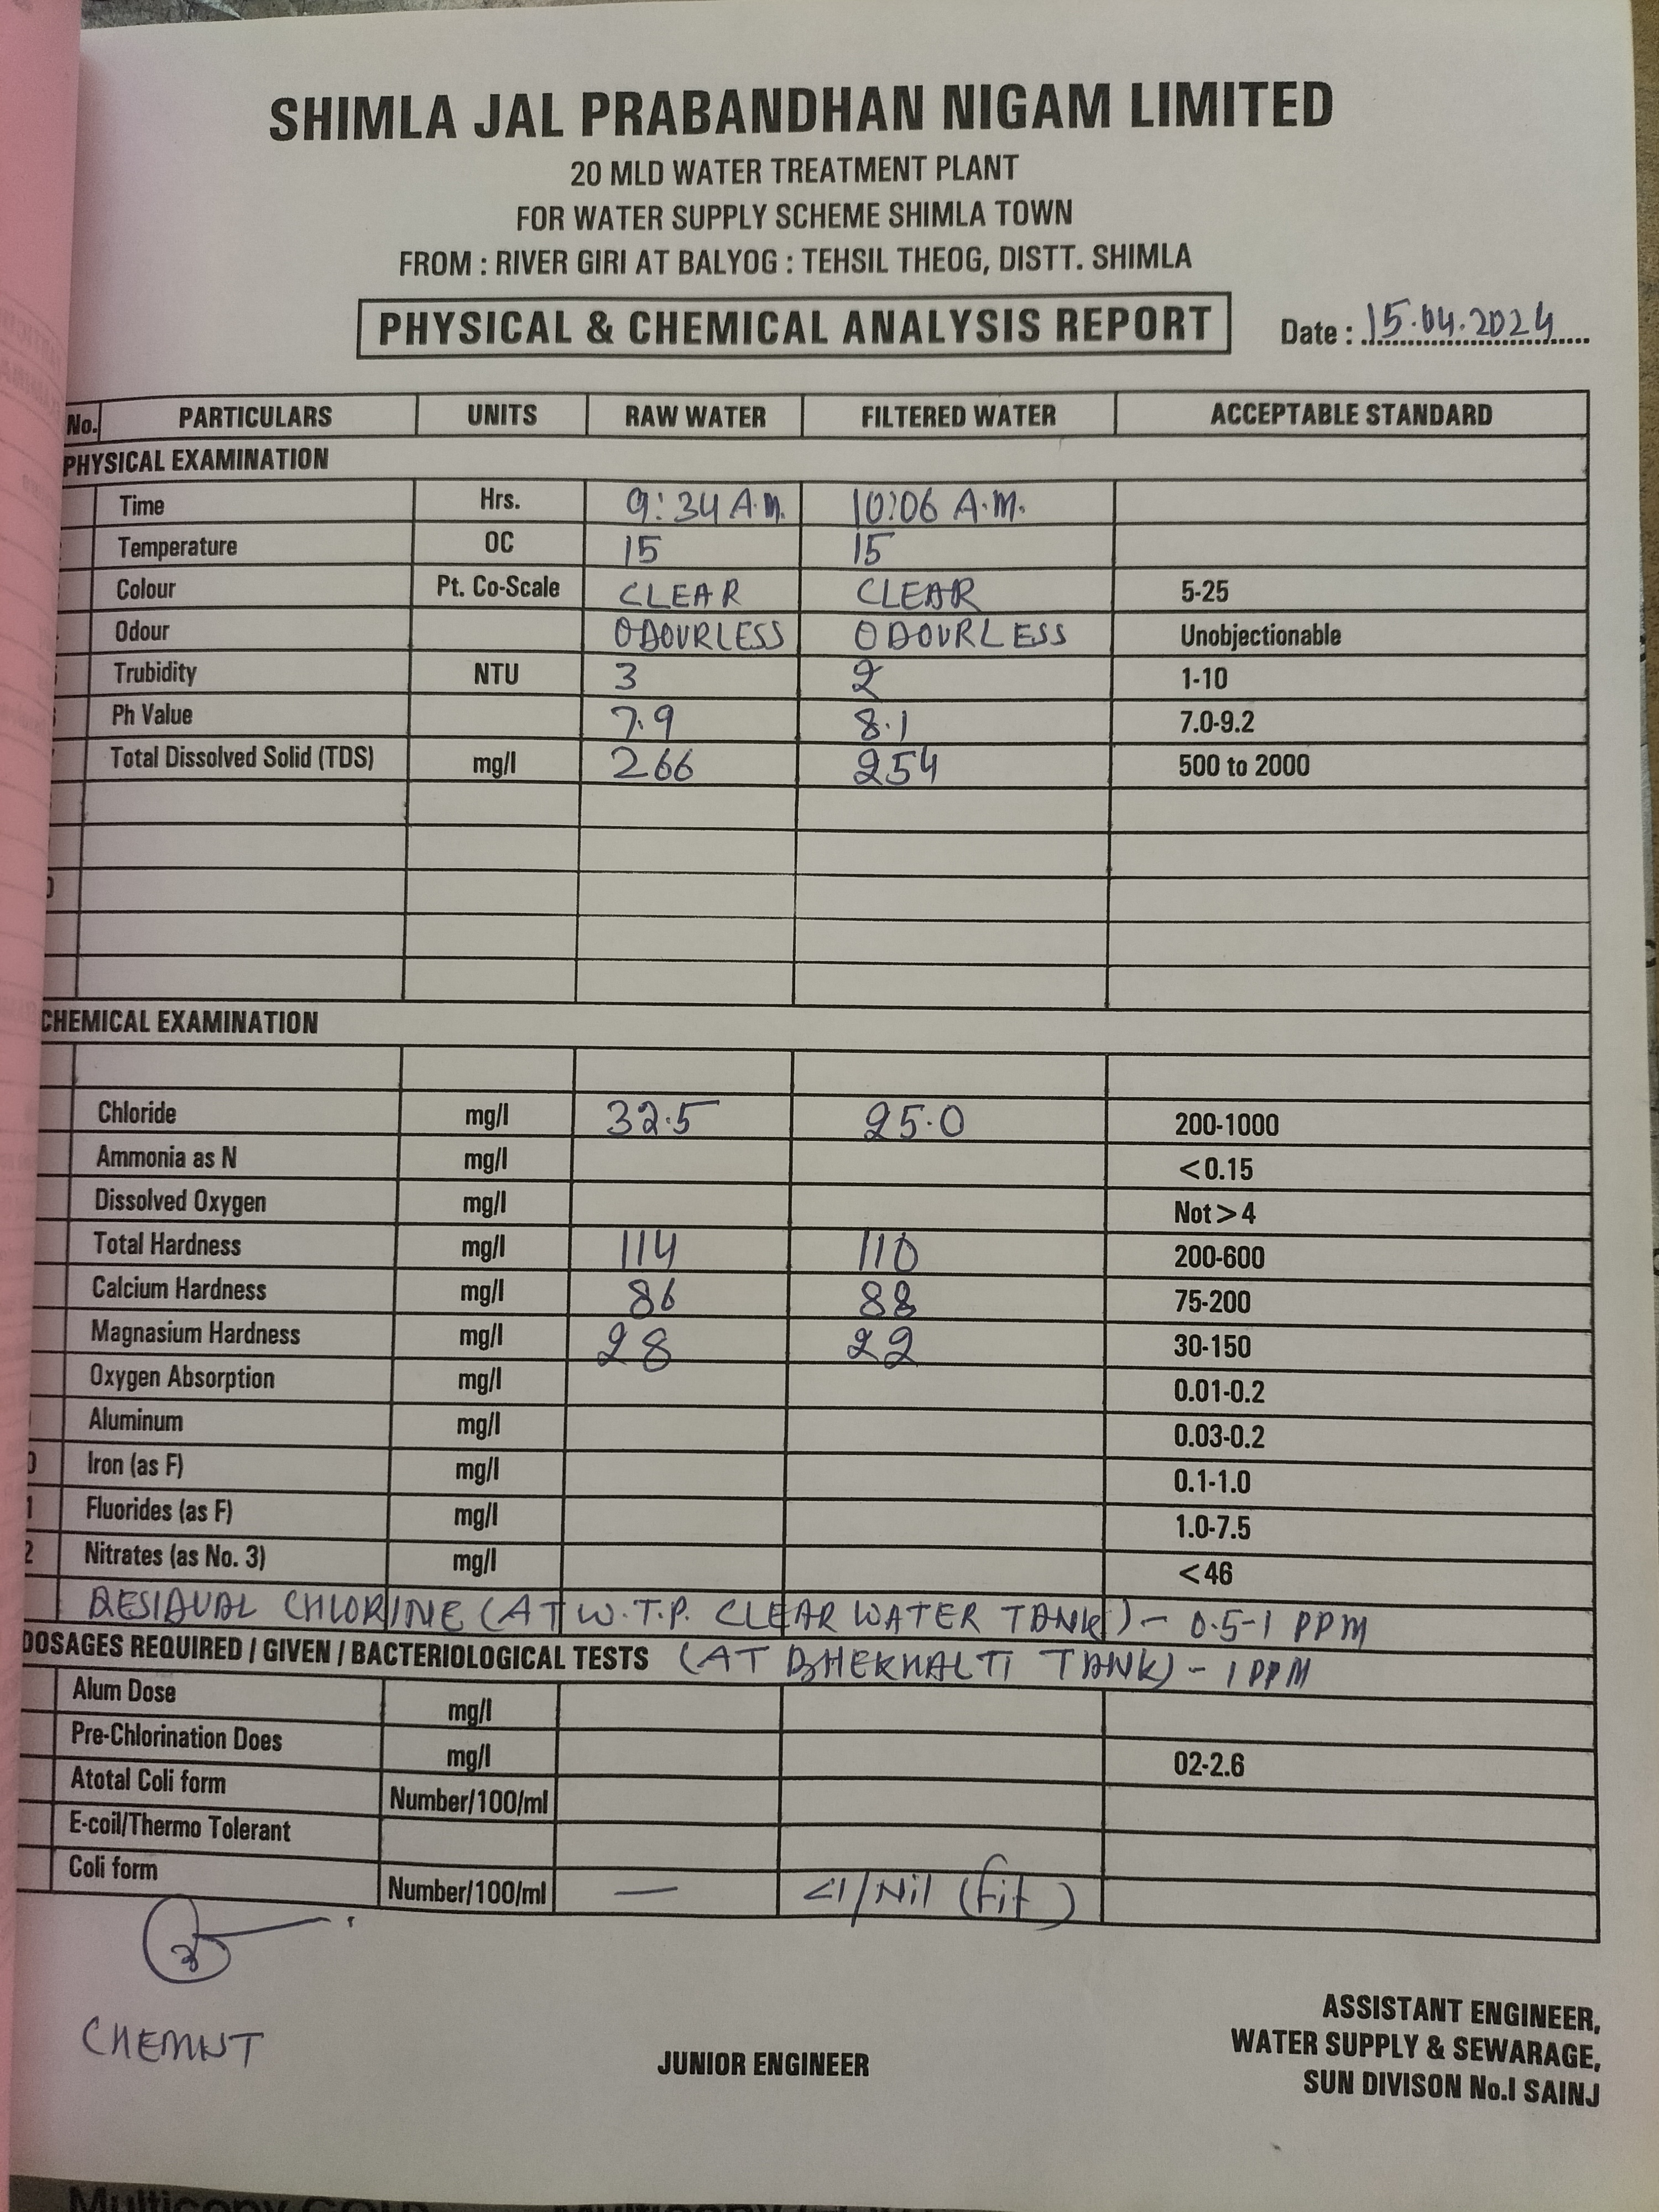 SHIMLA JAL PRABANDHAN NIGAM LIMITED
20 MLD WATER TREATMENT PLANT
FOR WATER SUPPLY SCHEME SHIMLA TOWN
FROM : RIVER GIRI AT BALYOG : TEHSIL THEOG, DISTT. SHIMLA
PHYSICAL & CHEMICAL ANALYSIS REPORT Date : 15.04.2024
No. PARTICULARS UNITS RAW WATER FILTERED WATER ACCEPTABLE STANDARD
PHYSICAL EXAMINATION
Time Hrs. 9:34 A.M. 10:06 A.M.
Temperature OC 15 15
Colour Pt. Co-Scale CLEAR CLEAR 5-25
Odour ODOURLESS ODOURLESS Unobjectionable
Trubidity NTU 3 2 1-10
Ph Value 7.9 8.1 7.0-9.2
Total Dissolved Solid (TDS) mg/l 266 254 500 to 2000
CHEMICAL EXAMINATION
Chloride mg/l 32.5 25.0 200-1000
Ammonia as N mg/l <0.15
Dissolved Oxygen mg/l Not > 4
Total Hardness mg/l 114 110 200-600
Calcium Hardness mg/l 86 88 75-200
Magnasium Hardness mg/l 28 22 30-150
Oxygen Absorption mg/l 0.01-0.2
Aluminum mg/l 0.03-0.2
Iron (as F) mg/l 0.1-1.0
1 Fluorides (as F) mg/l 1.0-7.5
2 Nitrates (as No. 3) mg/l <46
RESIDUAL CHLORINE (AT W.T.P. CLEAR WATER TANK) - 0.5-1 PPM
DOSAGES REQUIRED / GIVEN / BACTERIOLOGICAL TESTS (AT DHEKHALTI TANK) - 1 PPM
Alum Dose mg/l
Pre-Chlorination Does mg/l 02-2.6
Atotal Coli form Number/100/ml
E-coil/Thermo Tolerant
Coli form Number/100/ml — <1/Nil (fit)
CHEMIST
JUNIOR ENGINEER
ASSISTANT ENGINEER,
WATER SUPPLY & SEWARAGE,
SUN DIVISON No.I SAINJ